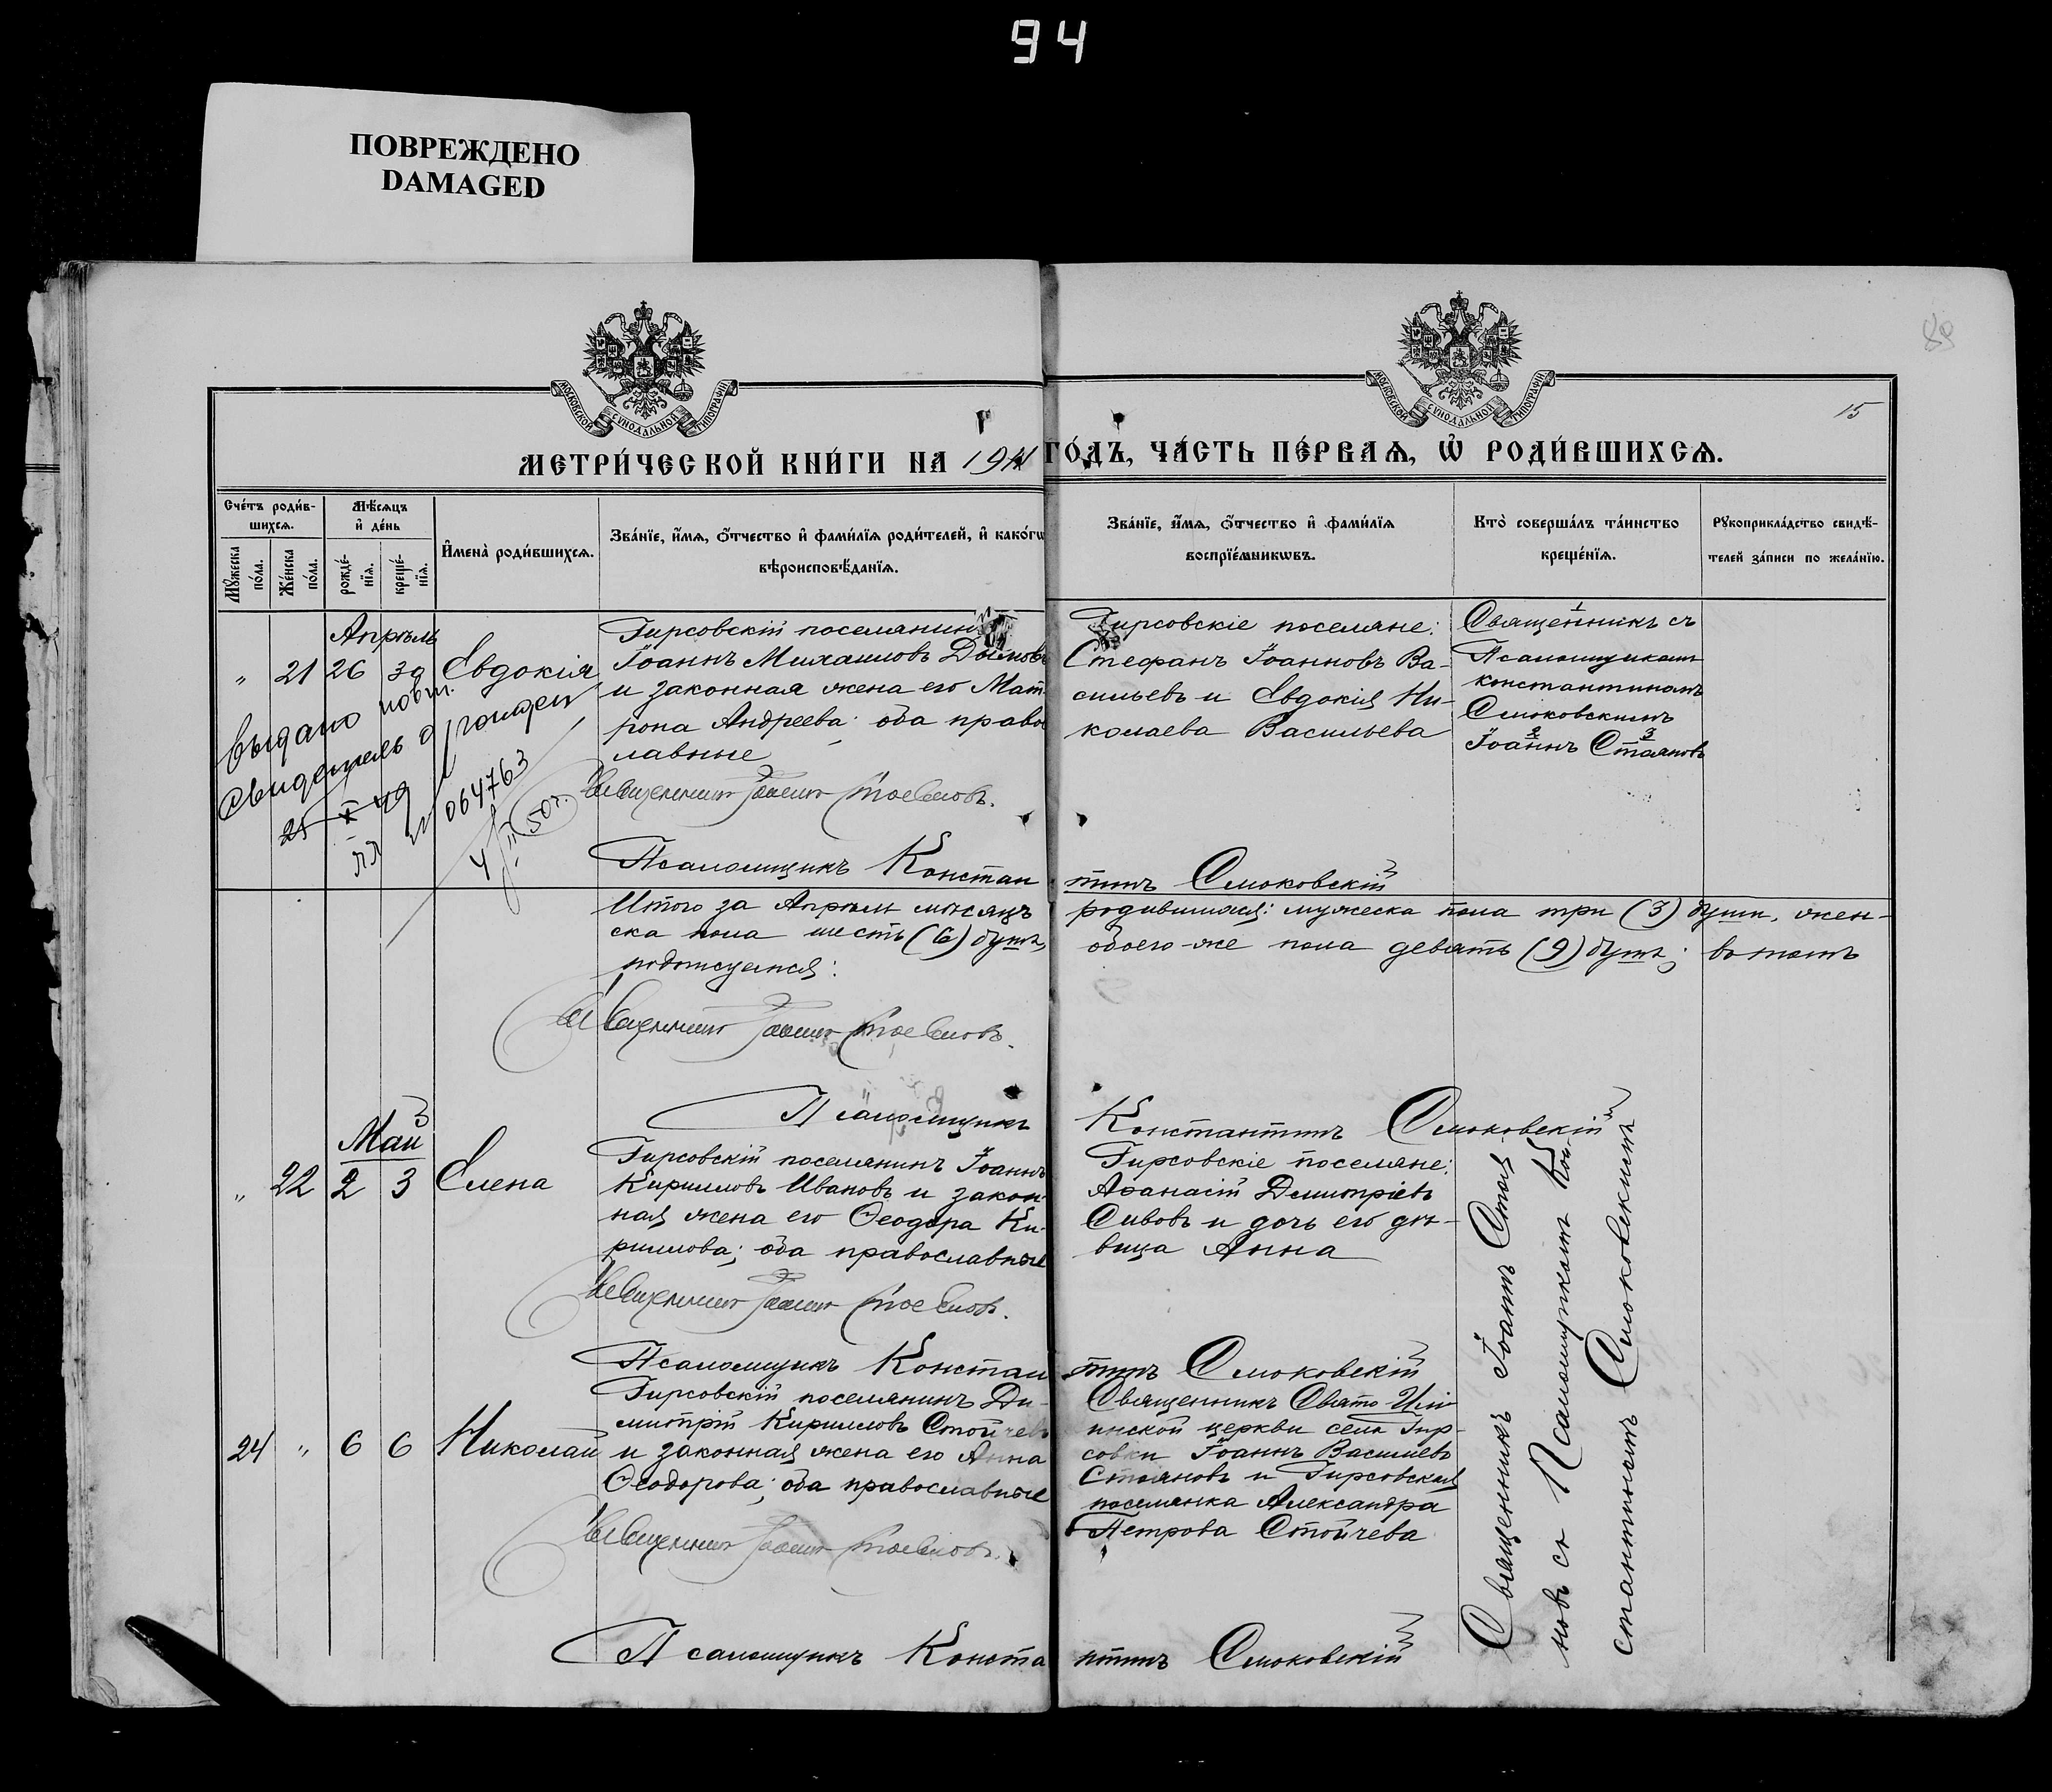 94
ПОВРЕЖДЕНО
DAMAGED
88
МОСКОВСКОЙ СУНОДАЛЬНОЙ ТИПОГРАФІИ
МОСКОВСКОЙ СУНОДАЛЬНОЙ ТИПОГРАФІИ
15
МЕТРИ́ЧЕСКОЙ КНИ́ГИ НА 1911 ГО́ДЪ, ЧА́СТЬ ПЕ́РВАѦ, Ѡ҆ РОДИ́ВШИХСѦ.
Сче́тъ роди́в-
шихсѧ.
Мꙋ́жеска
по́ла.
Же́нска
по́ла.
Мѣ́сѧцъ
и҆ де́нь
рожде́-
нїѧ.
креще́-
нїѧ.
И҆мена̀ роди́вшихсѧ.
Зва́нїе, и҆́мѧ, ѻ҆́тчество и҆ фами́лїѧ роди́телей, и҆ како́гѡ
вѣроисповѣ́данїѧ.
Зва́нїе, и҆́мѧ, ѻ҆́тчество и҆ фами́лїѧ
воспрїе́мникѡвъ.
Кто̀ соверша́лъ та́инство
креще́нїѧ.
Рꙋкоприкла́дство свидѣ́-
телей за́писи по жела́нїю.
Апрѣль
" 21 26 30 Евдокія
Гирсовскій поселянинъ
Іоаннъ Михаиловъ Дымовъ
и законная жена его Мат-
рона Андреева; оба право-
славные
Гирсовскіе поселяне:
Стефанъ Іоанновъ Ва-
сильевъ и Евдокія Ни-
колаева Васильева
1
Священникъ съ
Псаломщикомъ
Константиномъ
Смоковскимъ
2 3
Іоаннъ Стояновъ
Выдано повт.
свидетель о рожден
25 X 49
ЯЯ № 064763
4/II 50г.
Священникъ Іоаннъ Стояновъ.
Псаломщикъ Константинъ Смоковскій
Итого за Апрѣль мѣсяцъ родившихся: мужеска пола три (3) души, жен-
ска пола шесть (6) душъ, обоего-же пола девять (9) душъ; въ томъ
подписуемся:
Священникъ Іоаннъ Стояновъ.
Псаломщикъ Константинъ Смоковскій
Май
" 22 2 3 Елена
Гирсовскій поселянинъ Іоаннъ
Кирилловъ Ивановъ и закон-
ная жена его Ѳеодора Ки-
риллова; оба православные
Гирсовскіе поселяне:
Аѳанасій Димитріевъ
Сивовъ и дочь его дѣ-
вица Анна
Священникъ Іоаннъ Стоя
новъ съ Псаломщикомъ Кон-
стантиномъ Смоковскимъ
Священникъ Іоаннъ Стояновъ.
Псаломщикъ Константинъ Смоковскій
24 " 6 6 Николай
Гирсовскій поселянинъ Ди-
митрій Кирилловъ Стойчевъ
и законная жена его Анна
Ѳеодорова; оба православные
Священникъ Свято-Иль-
инской церкви села Гир-
совки Іоаннъ Васильевъ
Стояновъ и Гирсовская
поселянка Александра
Петрова Стойчева
Священникъ Іоаннъ Стояновъ.
Псаломщикъ Константинъ Смоковскій